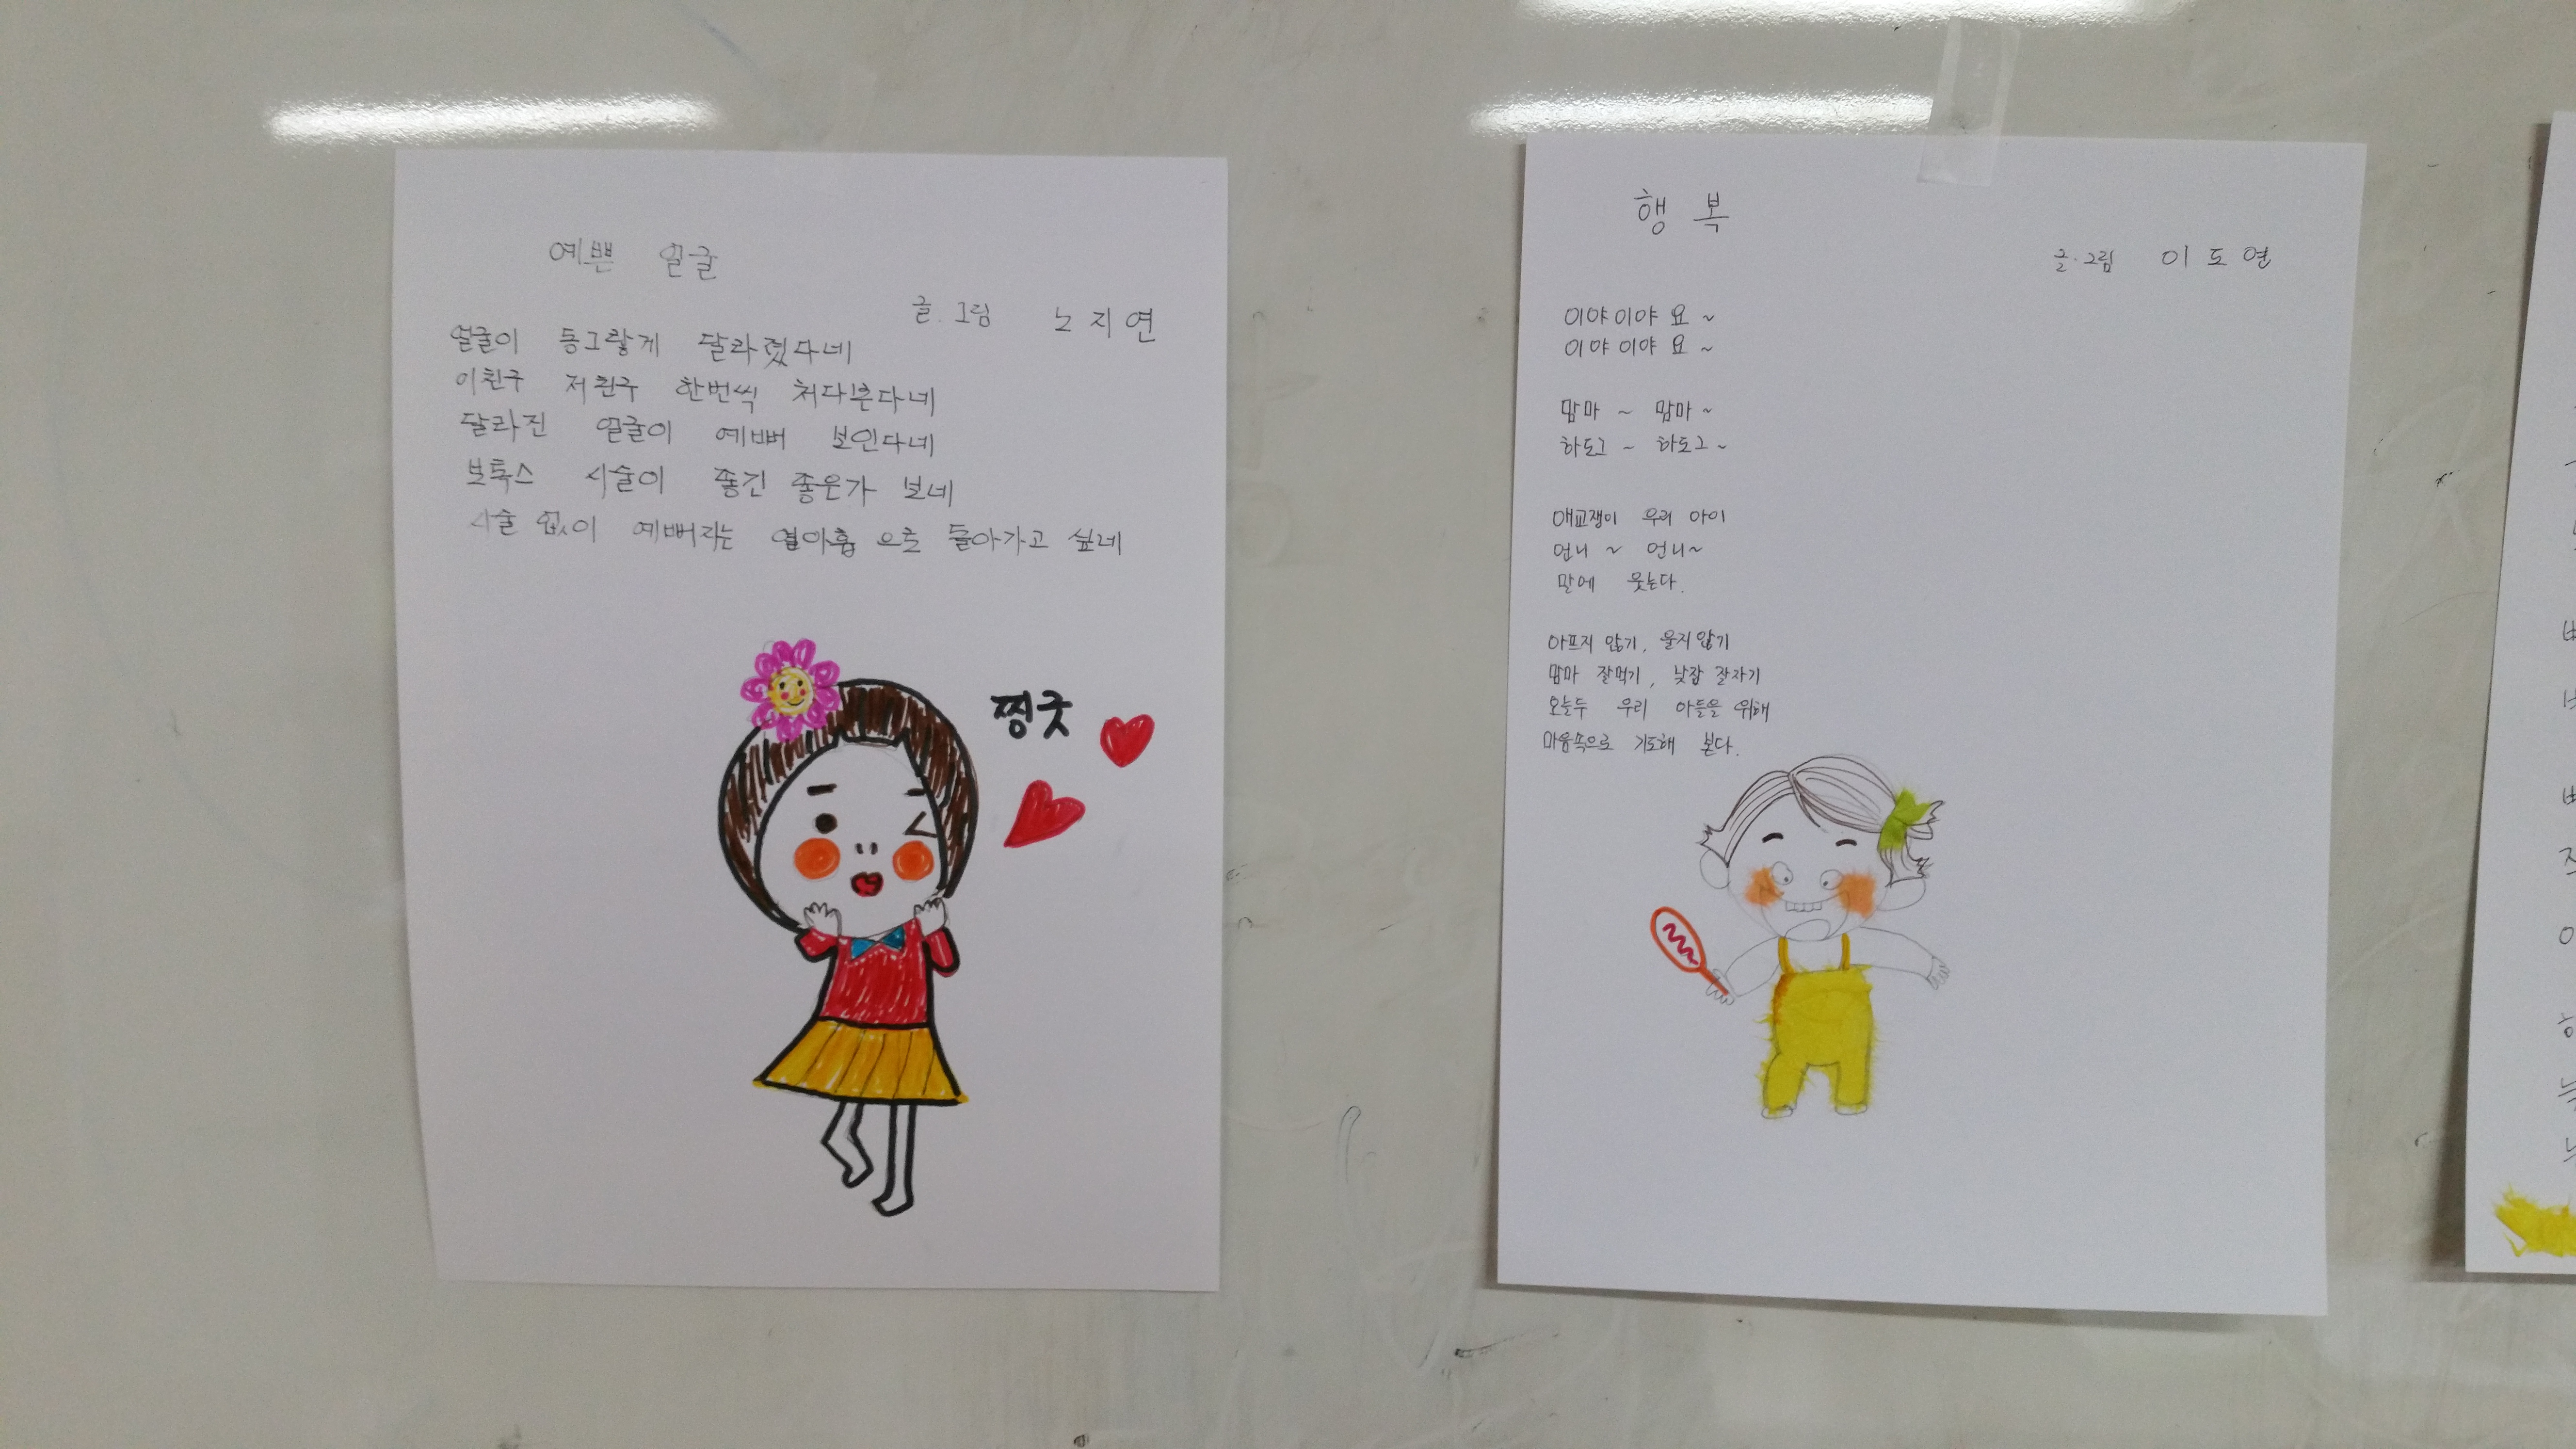 예쁜 얼굴
글.그림 노지연
얼굴이 동그랗게 달라졌다네
이친구 저친구 한번씩 쳐다본다네
달라진 얼굴이 예뻐 보인다네
보톡스 시술이 좋긴 좋은가 보네
시술 없이 예뻐지는 열아홉 으로 돌아가고 싶네
찡긋
행복
글.그림 이도연
이야이야 요~
이야이야 요~
맘마~ 맘마~
하도그~ 하도그~
애교쟁이 우리 아이
언니~ 언니~
말에 웃는다.
아프지 않기, 울지않기
맘마 잘먹기, 낮잠 잘자기
오늘두 우리 아들을 위해
마음속으로 기도해 본다.